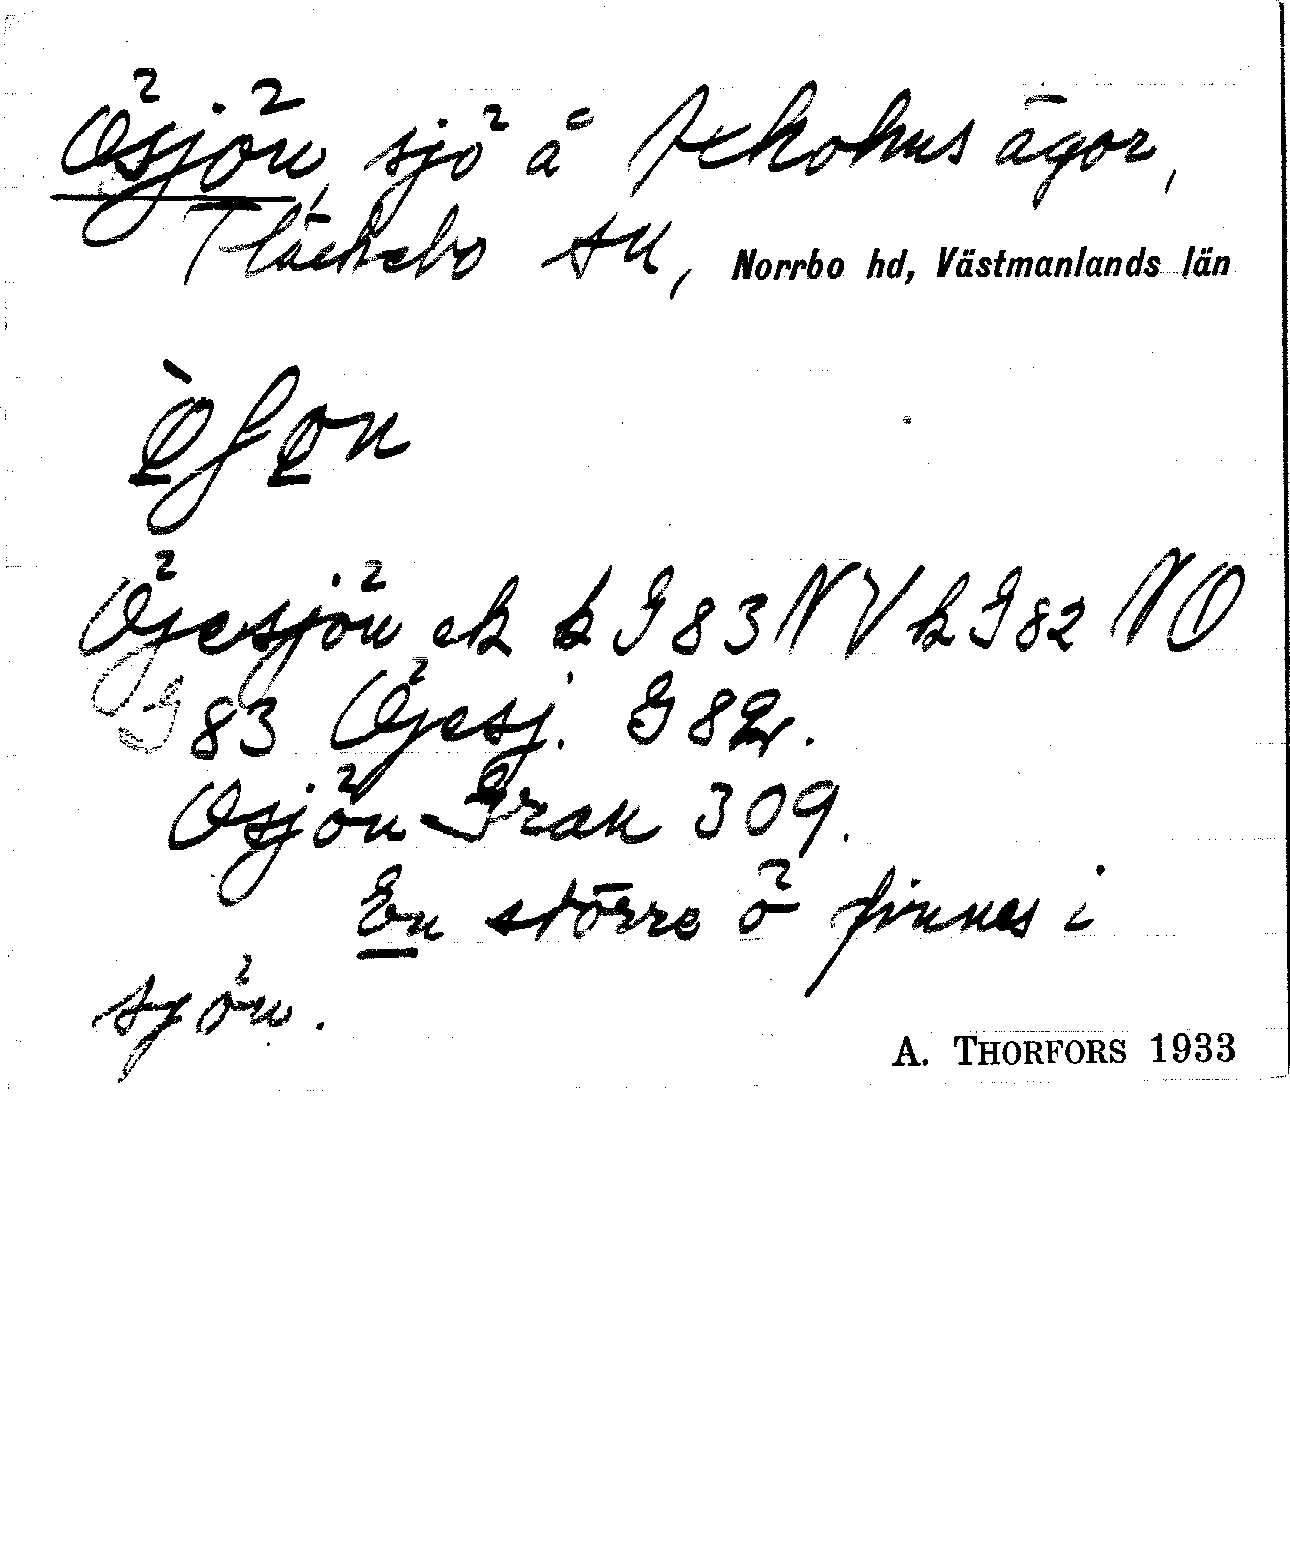 Ösjön, sjö å Jekohus ägor,
Fläckebo sn, Norrbo hd, Västmanlands län
Öjesjön ek k G 83 NV k G 82 NO
G 83 Öjesj. G 82.
Ösjön Gran 309.
En större ö finnes i
sjön.
A. THORFORS 1933